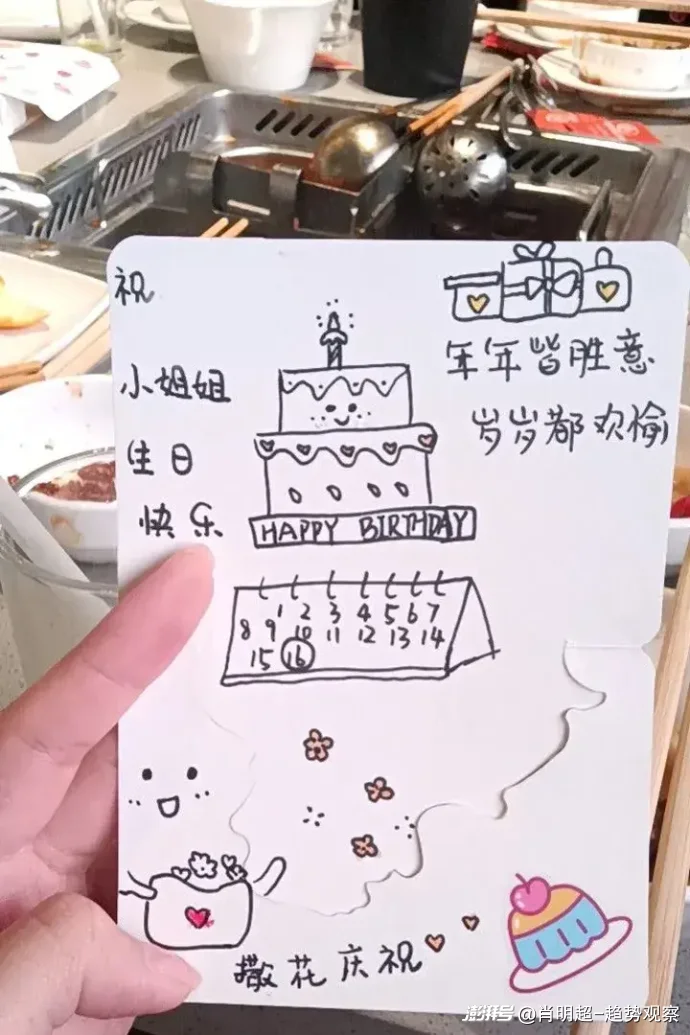 祝
小姐姐
生日
快乐
年年皆胜意
岁岁都欢愉
HAPPY BIRTHDAY
1 2 3 4 5 6 7
8 9 10 11 12 13 14
15 16
撒花庆祝
澎湃号 @肖明超-趋势观察